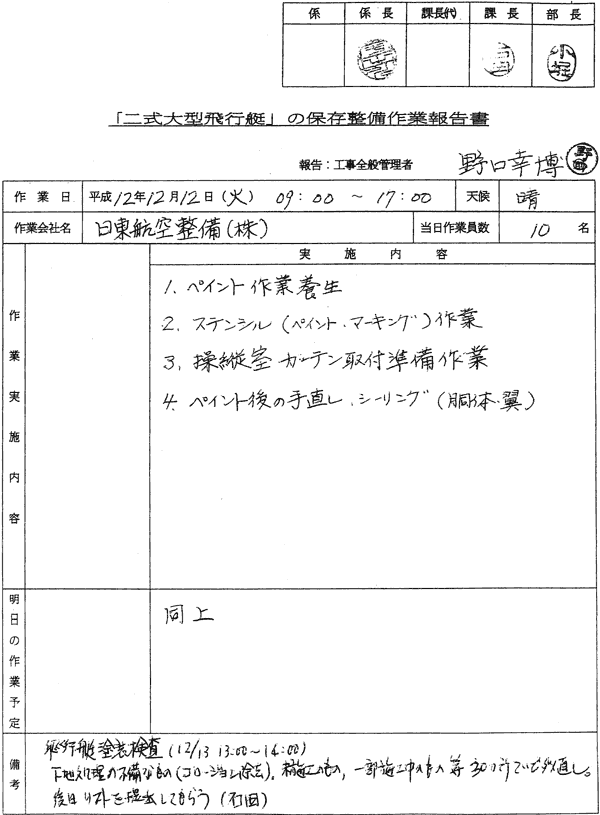 係 係長 課長代 課長 部長
小堀
「二式大型飛行艇」の保存整備作業報告書
報告：工事全般管理者 野口幸博 野口
作業日 平成12年12月12日(火) 09:00 ～ 17:00 天候 晴
作業会社名 日東航空整備(株) 当日作業員数 10 名
作業実施内容
実施内容
1. ペイント作業養生
2. ステンシル(ペイント、マーキング)作業
3. 操縦室カーテン取付準備作業
4. ペイント後の手直し、シーリング(胴体・翼)
明日の作業予定
同上
備考
飛行艇塗装検査(12/13 13:00～14:00)
下地処理の不備なもの(コロージョン除去)、未施工のもの、一部施工中のもの等30ヶ所でいど手直し。
後日リストを提出してもらう(石田)